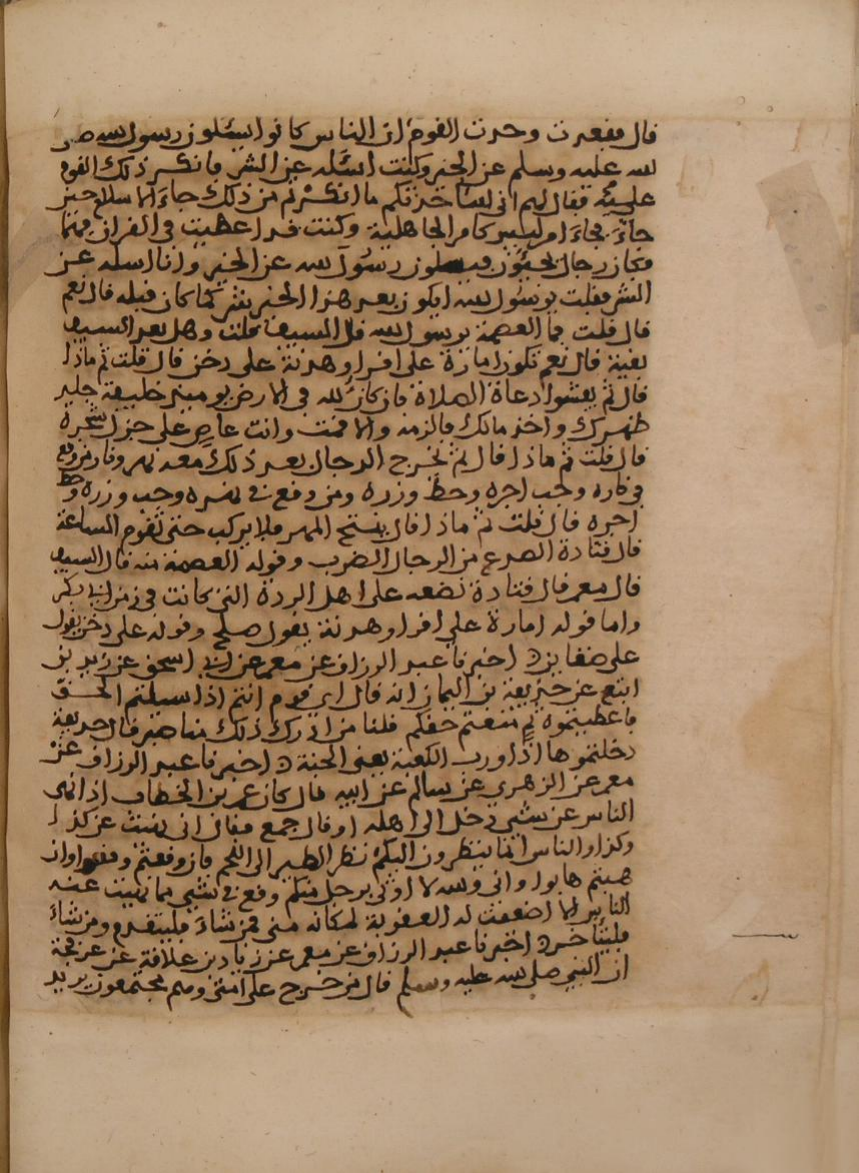 قال فقعدت وحدث القوم ان الناس كانوا يسئلون رسول الله صلى
لله عليه وسلم عن الخير وكنت اسئله عن الشر فانكر ذلك القوم
عليه فقال لهم اني ساخبركم ما انكرتم من ذلك جاء الاسلام حين
جاء فجاء امر ليس كامر الجاهلية وكنت قد اعطيت في القران فهما
فكان رجال يجيئون فيسئلون رسول الله عن الخير وانا اسله عن
الشر فقلت يرسول الله ايكون بعد هذا الخير شر كما كان قبله قال نعم
قال قلت فما العصمة يرسول الله قال السيف قلت وهل بعد السيف
بقية قال نعم تكون امارة على اقذا وهدنة على دخن قال قلت ثم ماذا
قال ثم يفشوا دعاة الضلالة فان كان لله في الارض يوميذ خليفة جلد
ظهرك واخذ مالك فالزمه والا فمت وانت عاض على جذل شجرة
قال قلت ثم ماذا قال ثم يخرج الدجال بعد ذلك معه نهر ونار من وقع
في ناره وجب اجره وحط وزره ومن وقع في نهره وجب وزره وحط
اجره قال قلت ثم ماذا قال ينتج المهر فلا يركب حتى تقوم الساعة
قال قتادة الصدع من الرجال الضرب وقوله العصمة منه قال السيف
قال معمر قال قتادة نضعه على اهل الردة التي كانت في زمن ابي بكر
واما قوله امارة على اقذا وهدنة يقول صلح وقوله على دخن يقول
على ضغاين د اخبرنا عبد الرزاق عن معمر عن ابي اسحق عن زيد بن
اثيع عن حذيفة بن اليمان انه قال اي قوم انتم اذا سيلتم الحق
فاعطيتموه ثم منعتم حقكم قلنا من ادرك ذلك منا صبر قال حذيفة
دخلتموها اذا ورب الكعبة يعني الجنة د اخبرنا عبد الرزاق عن
معمر عن الزهري عن سالم عن ابيه قال كان عمر بن الخطاب اذا نهى
الناس عن شيي دخل الى اهله او قال جمع فقال اني نهيت عن كذا
وكذا والناس انما ينظرون اليكم نظر الطير الى اللحم فان وقعتم وقعوا وان
هبتم هابوا واني والله لا اوتى برجل منكم وقع في شيي مما نهيت عنه
الناس الا اضعفت له العقوبة لمكانه مني فمن شاء فليتقدم ومن شاء
فليتاخر د اخبرنا عبد الرزاق عن معمر عن زياد بن علاقة عن عرفجة
ان النبي صلى لله عليه وسلم قال من خرج على امتي وهم مجتمعون يريد